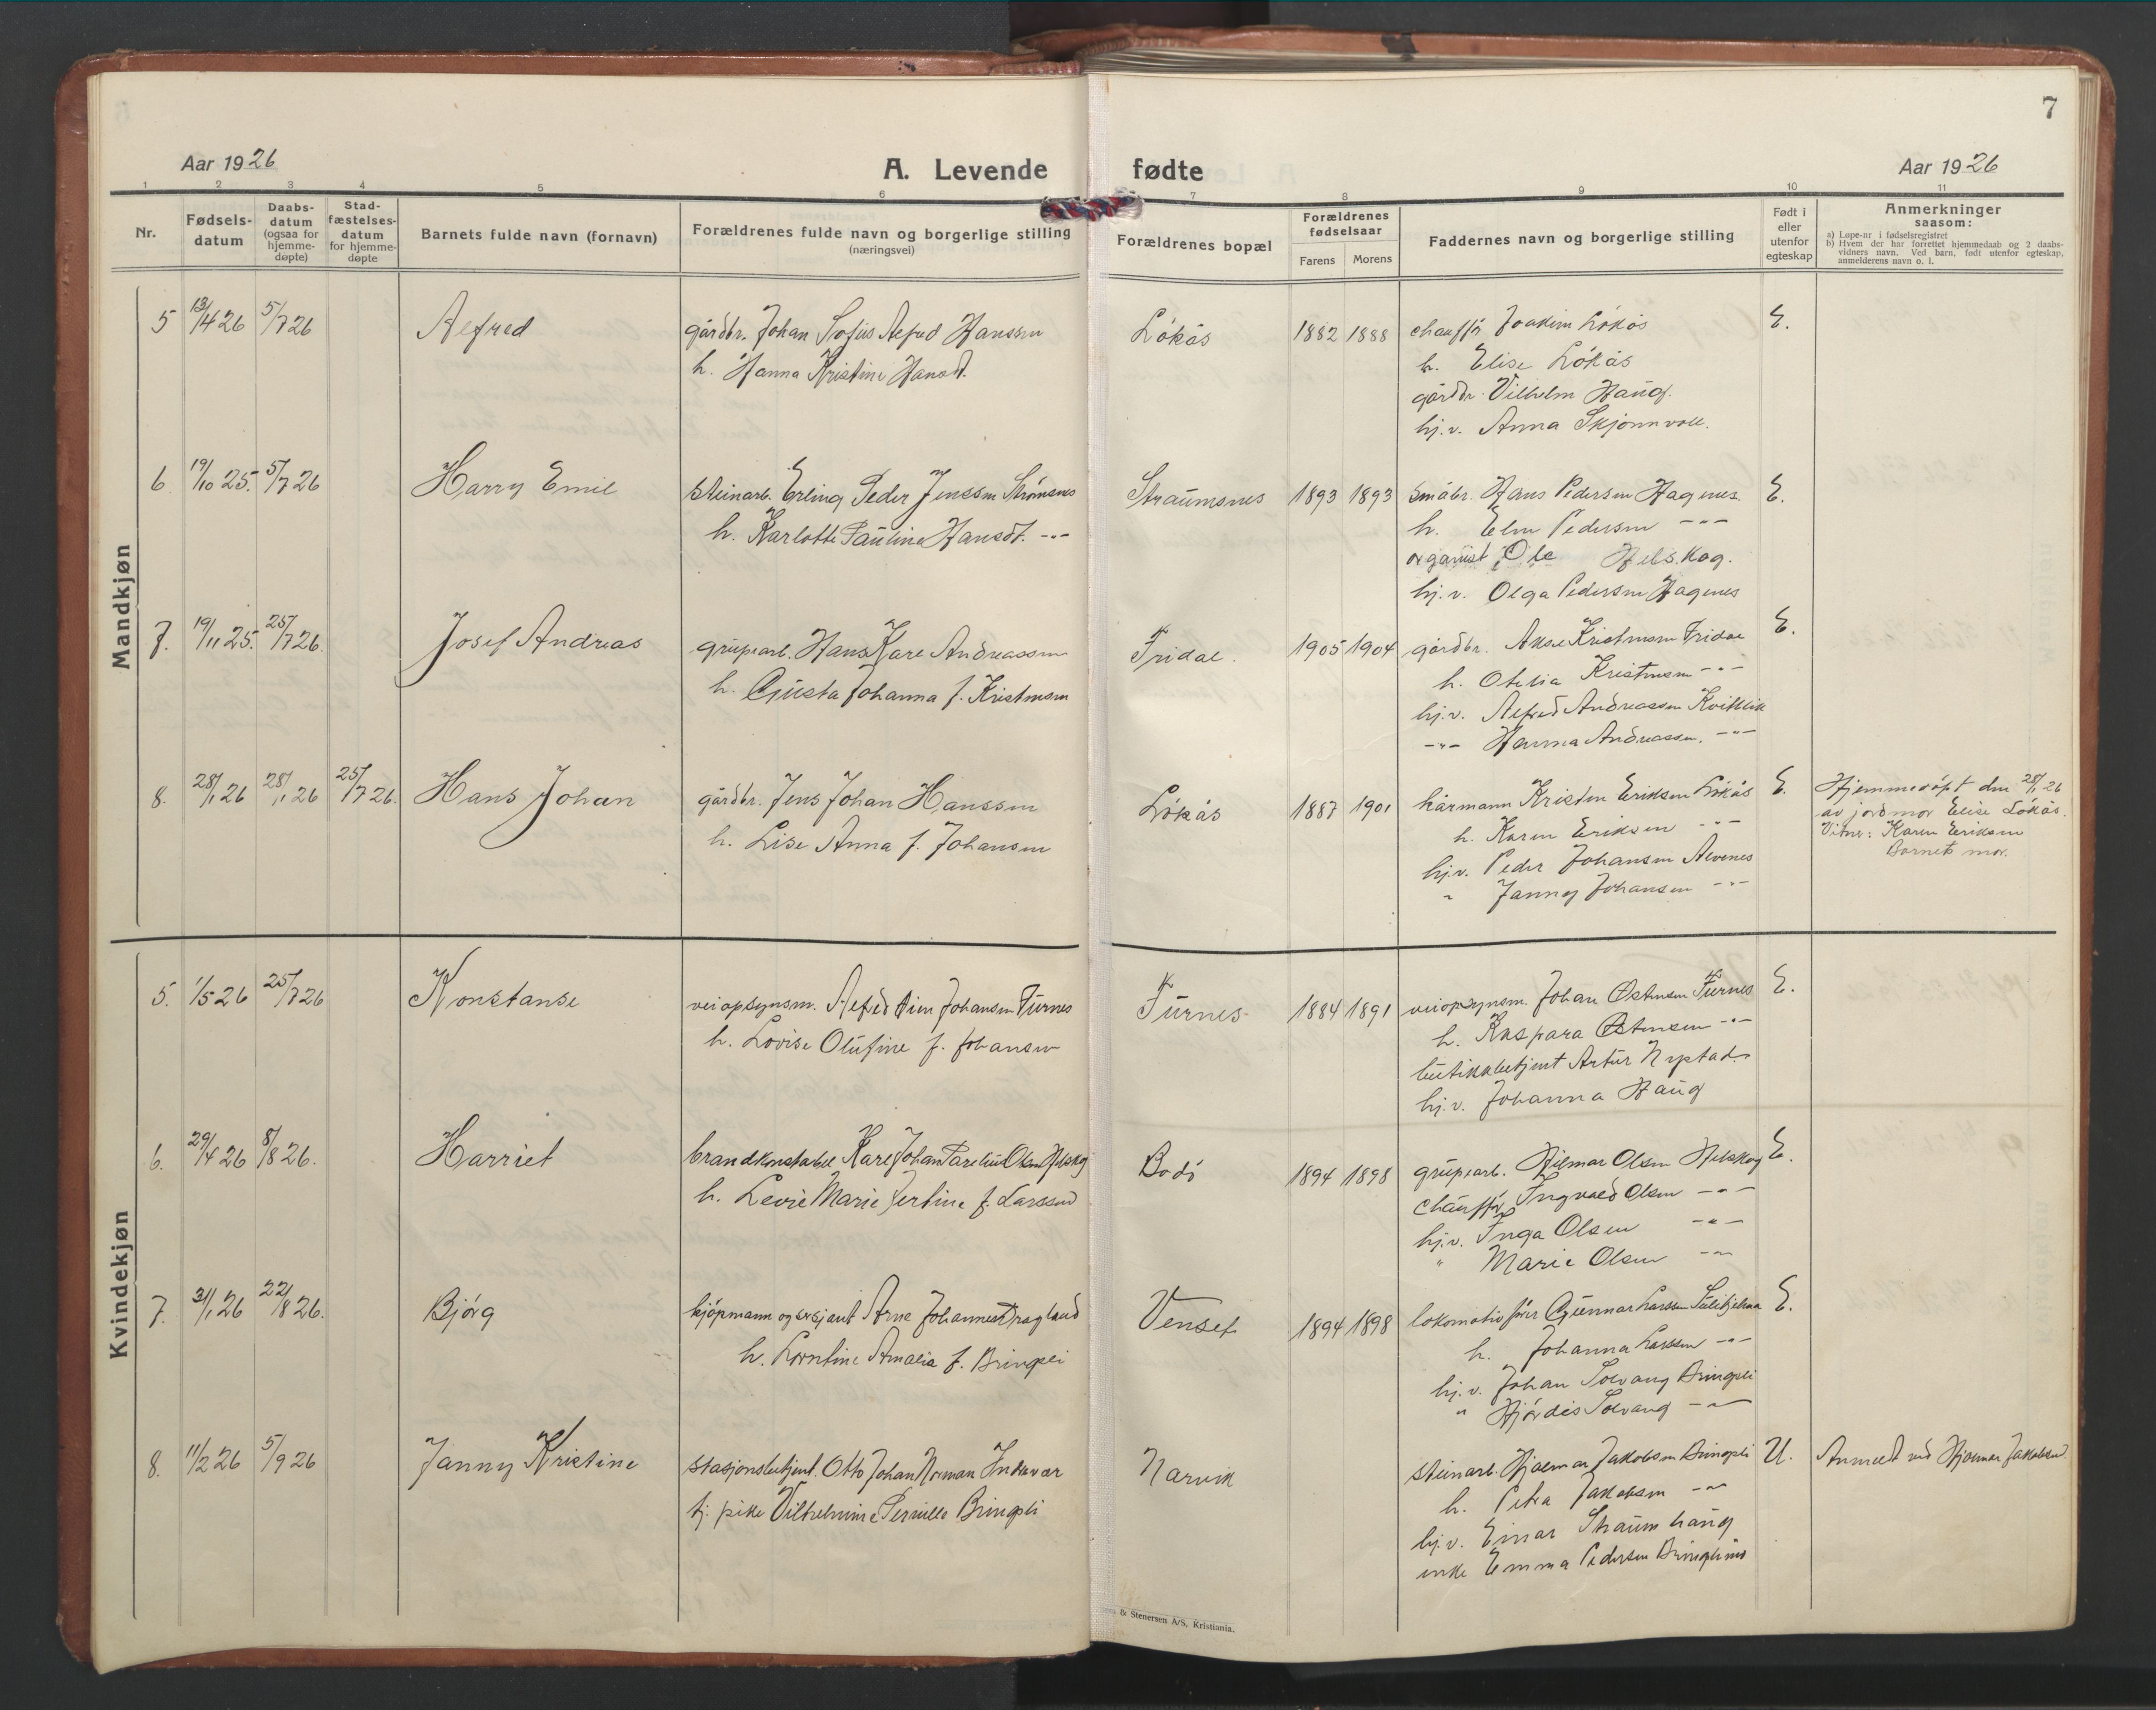 7
Aar 1926
A. Levende fødte
Aar 1926
1 2 3 4 5 6 7 8 9 10 11
Nr.
Fødsels-
datum
Daabs-
datum
(ogsaa for
hjemme-
døpte)
Stad-
fæstelses-
datum
for hjemme-
døpte
Barnets fulde navn (fornavn)
Forældrenes fulde navn og borgerlige stilling
(næringsvei)
Forældrenes bopæl
Forældrenes
fødselsaar
Farens Morens
Faddernes navn og borgerlige stilling
Født i
eller
utenfor
egteskap
Anmerkninger
saasom:
a) Løpe-nr i fødselsregistret
b) Hvem der har forrettet hjemmedaab og 2 daabs-
vidners navn. Ved barn, født utenfor egteskap,
anmelderens navn o. l.
Mandkjøn
5 13/4 26 5/7 26 Alfred
gårdbr. Johan Sofus Alfred Hanssen
h. Hanna Kristine Hansdt.
Løkås 1882 1888
chauffør Joakim Løkås
h. Elise Løkås
gårdbr. Vilhelm Haug.
hj.v. Anna Skjønnvoll.
E.
6 19/10 25. 5/7 26 Harry Emil
steinarb. Erling Peder Jenssen Strømsnes
h. Karlotte Pauline Hansdt. -"-
Straumsnes 1893 1893
småbr. Hans Pedersen Hagenes
h. Elen Pedersen -"-
organist Ole Helskog.
hj.v. Olga Pedersen Hagenes
E.
7. 19/11 25. 25/7 26. Josef Andreas
grupearb. Hans Kare Andreassen
h. Gusta Johanna f. Kristensen
Fridal. 1905 1904
gårdbr. Aksel Kristensen Fridal
h. Otelia Kristensen -"-
hj.v. Alfred Andreassen Kvitblik
-"- Hanna Andreassen. -"-
E.
8. 28/1 26 28/1 26 25/7 26. Hans Johan
gårdbr. Jens Johan Hanssen
h. Lise Anna f. Johansen
Løkås 1887 1901
kårmann Kristen Eriksen Løkås
h. Karen Eriksen -"-
hj.v. Peder Johansen Alvenes
" Janny Johansen -"-
E.
Hjemmedøpt den 28/1 26
av jordmor Elise Løkås.
Vitner: Karen Eriksen
Barnets mor.
Kvindekjøn
5. 1/5 26 25/7 26 Konstanse
veiopsynsm. Alfred Johansen Furnes
h. Lovise Olufine f. Johansen
Furnes 1884 1891
veiopsynsm. Johan Østensen Furnes
h. Kaspara Østensen -"-
butikkbetjent Artur Nystad.
hj.v. Johanna Haug
E.
6. 29/4 26 8/8 26. Harriet
brandkonstabel Karl Johan Parelius Olsen Helskog
h. Marie f. Larssen
Bodø 1894 1898
grupearb. Hilmar Olsen Helskog
chauffør Ingvald Olsen -"-
hj.v. Inga Olsen -"-
" Marie Olsen -"-
E.
7. 31/1 26 22/8 26. Bjørg
kjøpmann og sersjant Arne Johannes Dragland
h. Lorntine Amalia f. Bringsli
Venset 1894 1898
lokomotivfører Gunnar Larssen Sulitjelma
h. Johanna Larssen -"-
hj.v. Johan Solvang Bringsli
" Hjørdis Solvang -"-
E.
8. 11/2 26 5/9 26 Janny Kristine
stasjonsbetjent. Otto Johan Norman Indsvær
tj. pike Vilhelmine Pernille Bringsli
Narvik
steinarb. Hjalmar Jakobsen Bringsli
h. Petra Jakobsen -"-
hj.v. Einar Straumhaug
enke Emma Pedersen
U.
Anmeldt ved Hjalmar Jakobsen.
& Stenersen A/S, Kristiania.